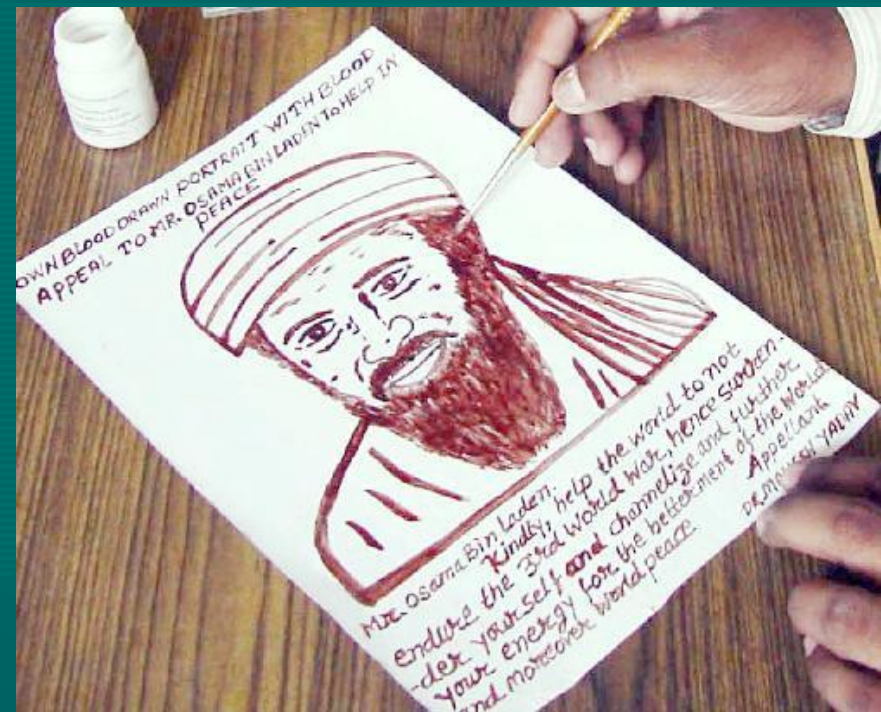 OWN BLOOD DRAWN PORTRAIT WITH BLOOD
APPEAL TO MR. OSAMA BIN LADEN TO HELP IN
PEACE
Mr. Osama Bin Laden.
Kindly, help the world to not
endure the 3rd world war, hence surren-
-der yourself and channelize and further
your energy for the betterment of the World
and moreover world peace
Appellant
DR. YADAV